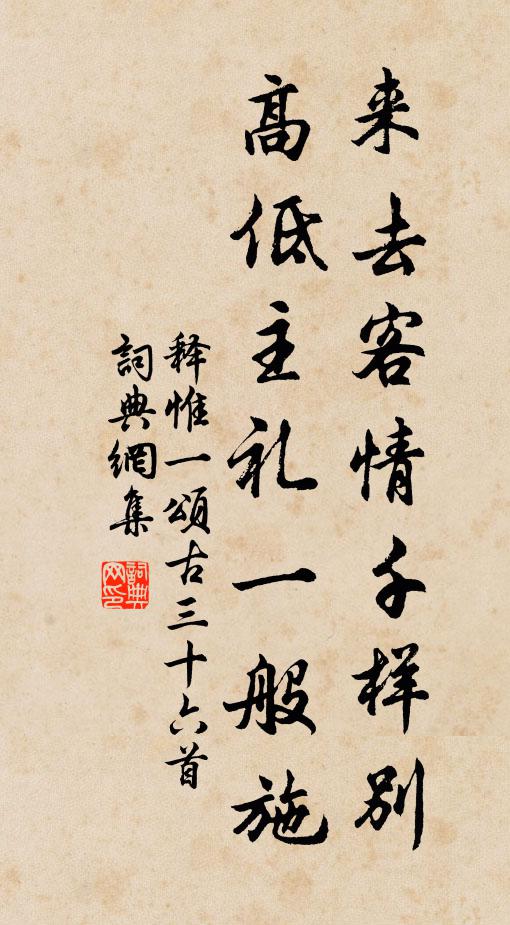 来去客情千样别
高低主礼一般施
释惟一頌古三十六首
詞典網集
詞典网印